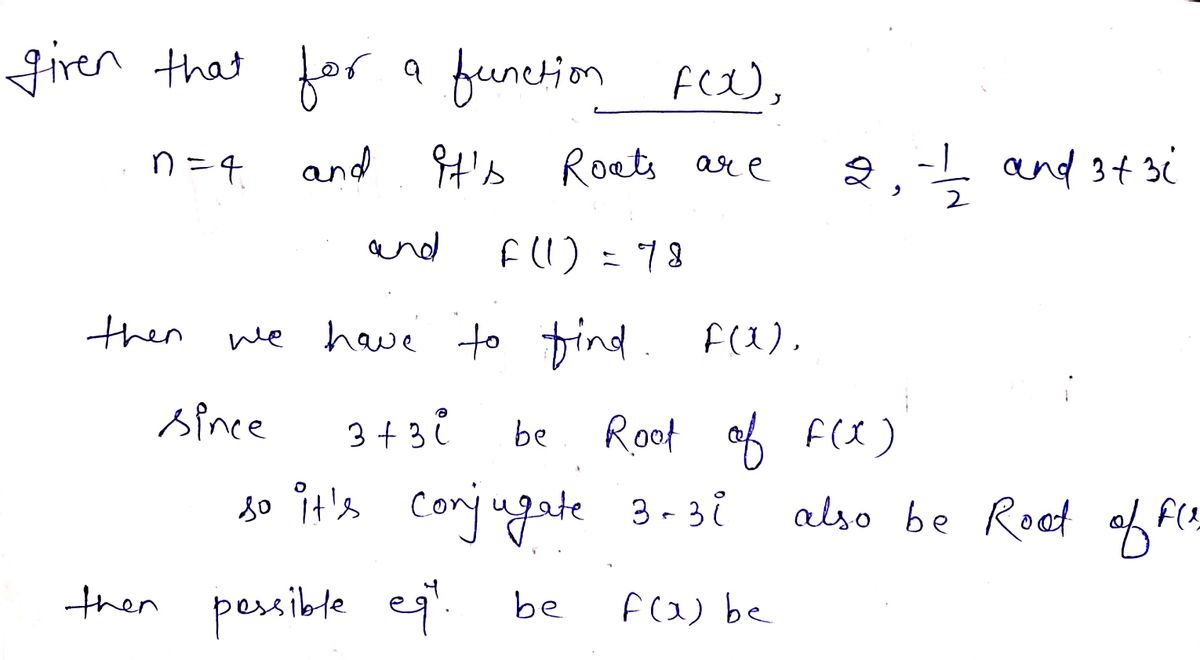 given that for a function f(x),
n=4 and it's Roots are 2, -1/2 and 3+3i
and f(1) = 78
then we have to find. f(x).
since 3+3i be Root of f(x)
so it's conjugate 3-3i also be Root of f(x
then possible eqn. be f(x) be